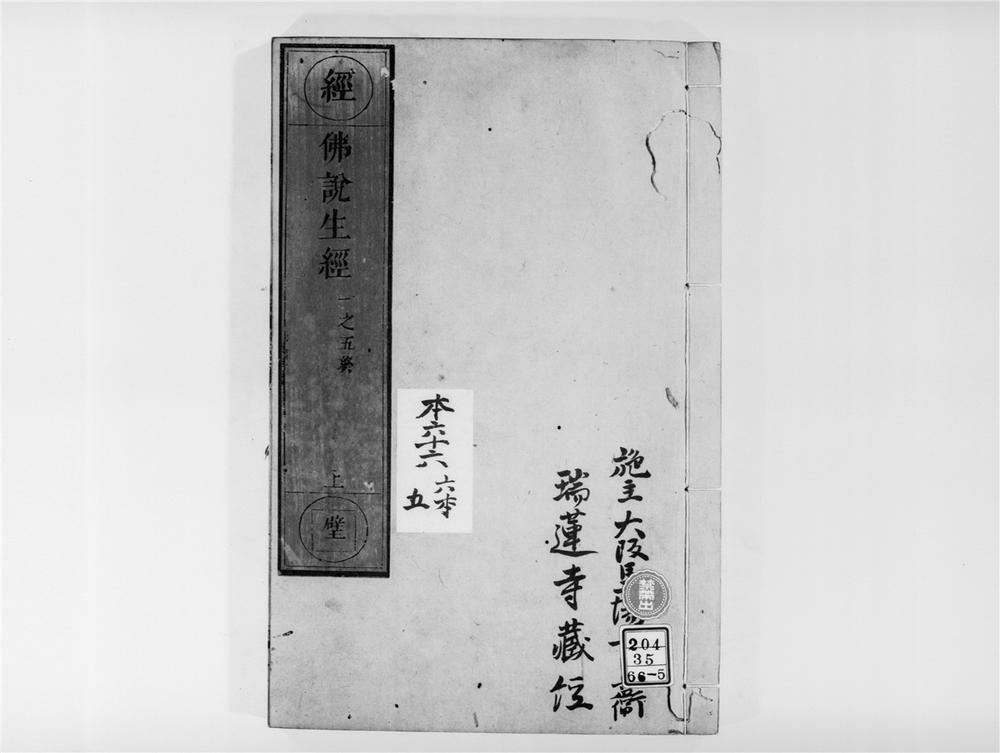 經
佛說生經
一之五終
上
壁
本六十六
六本
五
施主大阪馬場
衛
瑞蓮寺藏經
禁帶出
204
35
66-5